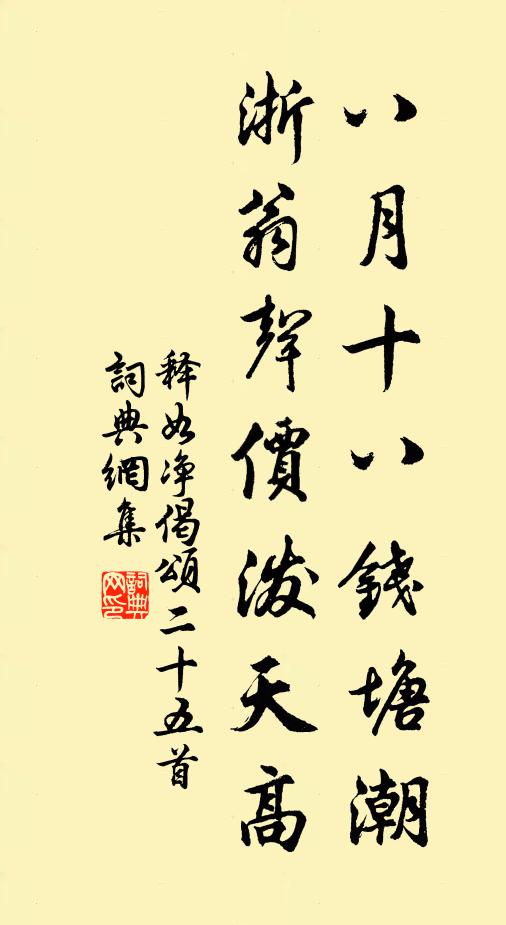 八月十八錢塘潮
浙翁聲價潑天高
释如净偈頌二十五首
詞典網集
詞典网印